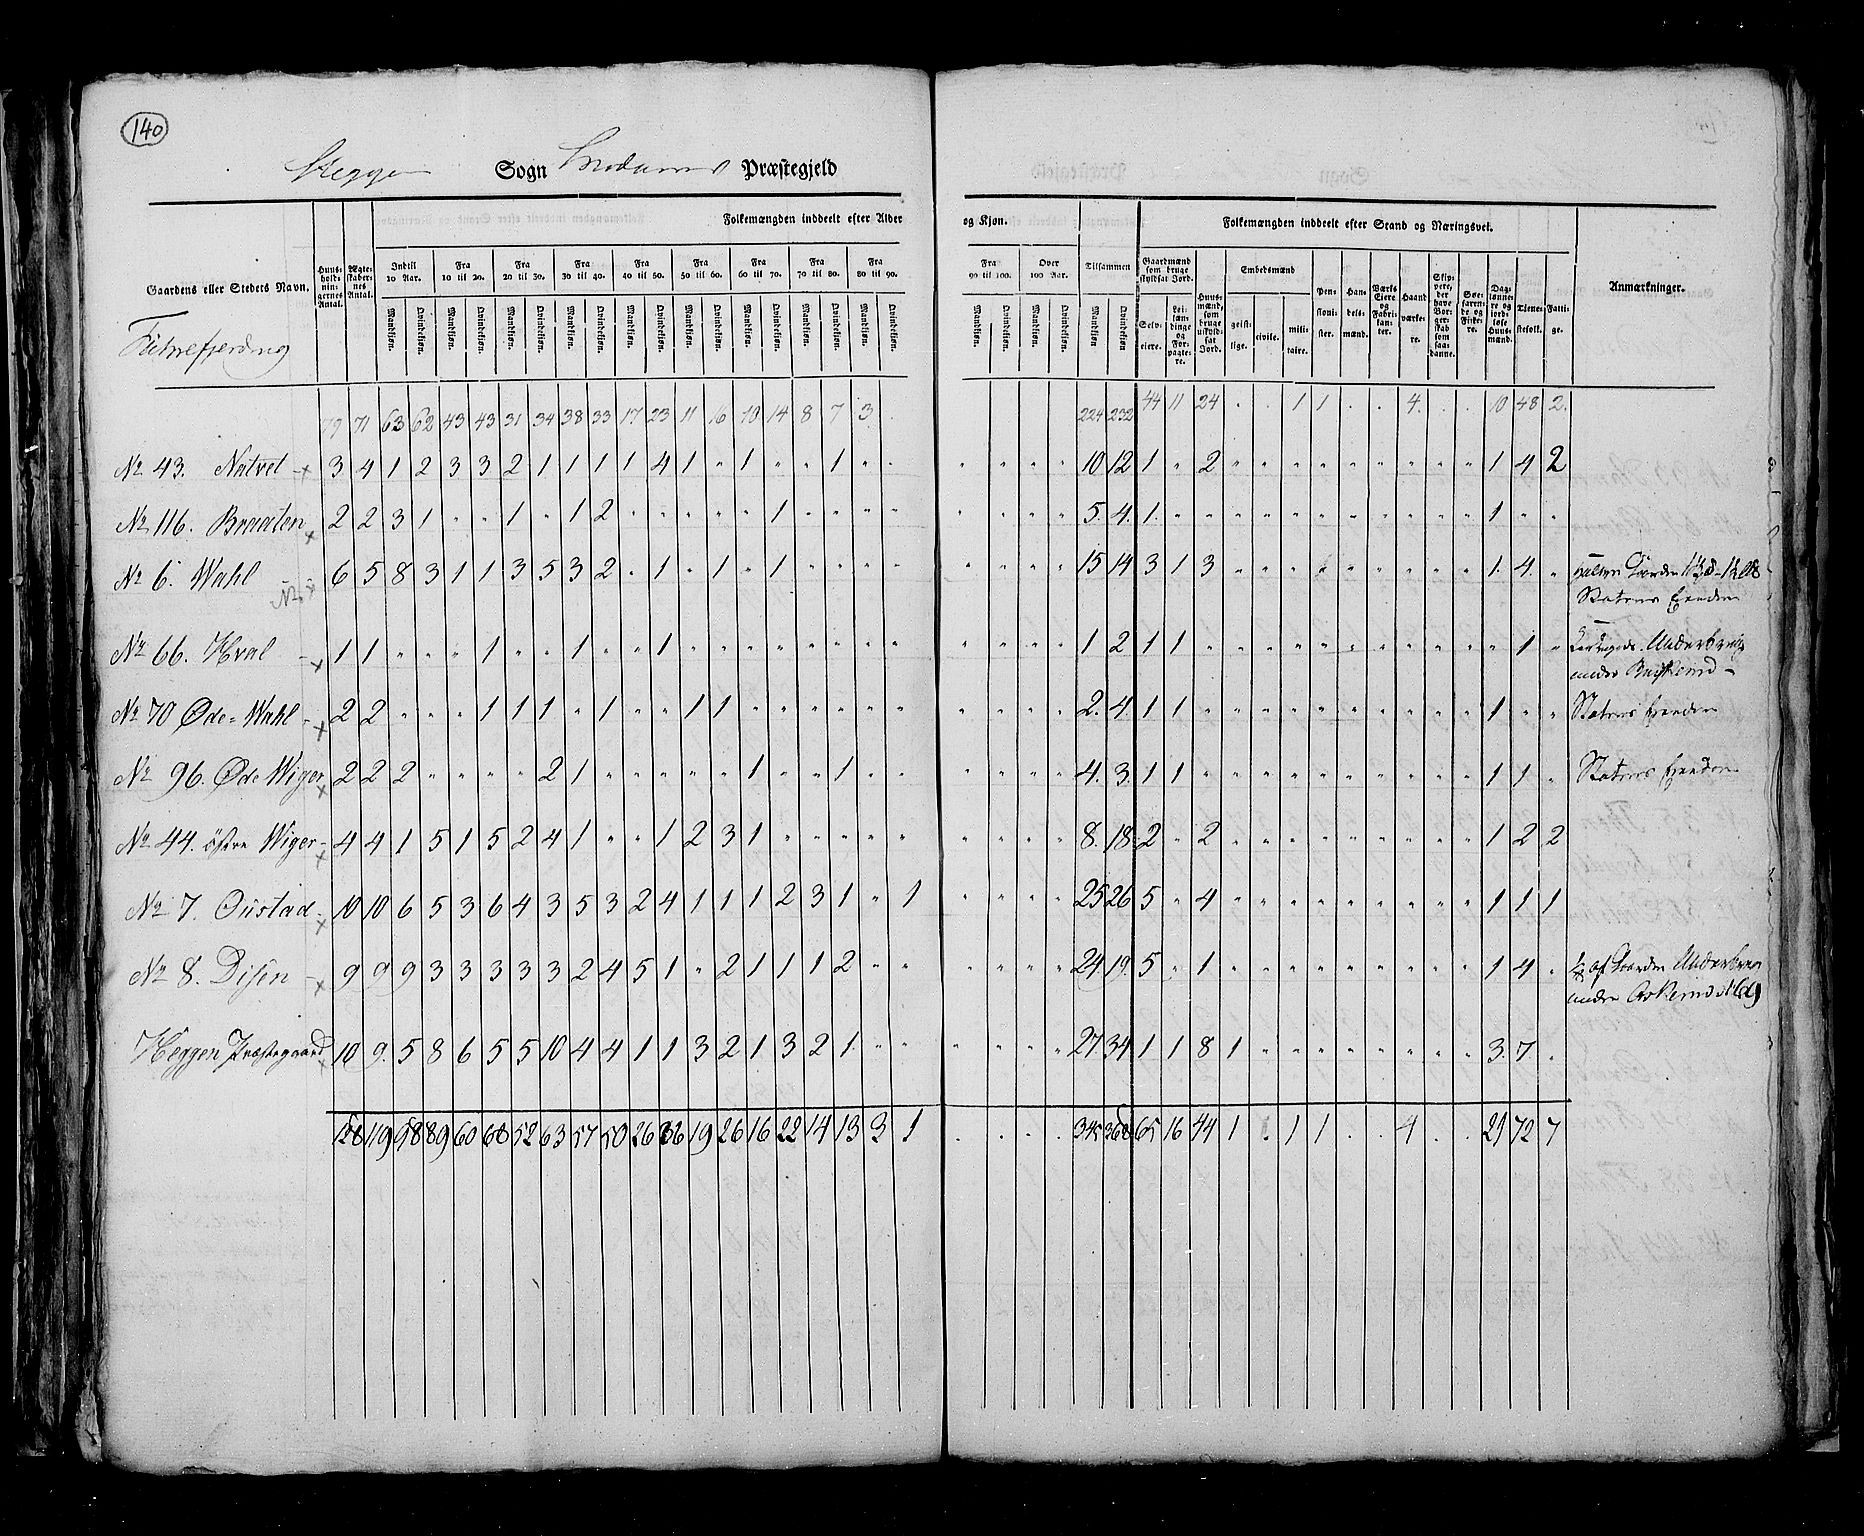 140
Heggen Sogn Modums Præstegjeld
Folkemængden inddeelt efter Alder og Kjøn.
Folkemængden inddeelt efter Stand og Næringsvei.
Gaardens eller Stedets Navn.
Huus-holdnin-gernes Antal.
Ægte-skaber-nes Antal.
Indtil 10 Aar.
Fra 10 til 20.
Fra 20 til 30.
Fra 30 til 40.
Fra 40 til 50.
Fra 50 til 60.
Fra 60 til 70.
Fra 70 til 80.
Fra 80 til 90.
Fra 90 til 100.
Over 100 Aar.
Tilsammen
Mandkiøn. Qvindekiøn.
Gaardmænd som bruge skyldsat Jord.
Selv-eiere.
Lei-læn-dinge og For-pagte-re.
Huus-mænd, som bruge uskyld-sat Jord.
Embedsmænd
geist-lige. civile. mili-taire.
Pen-sioni-ster.
Han-dels-mænd.
Værks Eiere og Fabri-kan-ter.
Haand værke-re.
Skip-pere, der have Bor-ger-skab som saa-danne.
Søe-faren-de og Fiske-re.
Dag-lønne-re og jord-løse Huus-mænd.
Tiene-stefolk.
Fatti-ge.
Anmærkninger.
79 71 63 62 43 43 31 34 38 33 17 23 11 16 10 14 8 7 3 224 232 44 11 24 . . 1 1 . . 4. . . 10 48 2.
No 43. Natvet 3 4 1 2 3 3 2 1 1 1 1 4 1 " 1 " " 1 " " " " " " 10 12 1 " 2 " " " " " " " " " 1 4 2
No 116. Braaten 2 2 3 1 " " 1 " 1 2 " " " " " 1 " " " " " " " " 5. 4. 1. " " " " " " " " " " " 1 " "
No 6. Wahl 6 5 8 3 1 1 3 5 3 2 " 1 " 1 " 1 " " " " " " " " 15 14 3 1 3 " " " " " " " " " 1. 4. "
Statens Eiendom
No 66. Hval 1 1 " " " 1 " " 1 " " 1 " " " " " " " " " " " " 1 2 1 1 " " " " " " " " " " " 1 "
Underbrug
under
No 70 Øde-Wahl 2 2 " " " 1 1 1 " 1 " " 1 1 " " " " " " " " " " 2. 4. 1 1 " " " " " " " " " " 1 " " Statens Eiendom
No 96. Øde Wiger 2 2 2 " " " " 2 1 " " " " " 1 " " 1 " " " " " " 4. 3. 1 1 " " " " " " " " " " 1 1 " Statens Eiendom
No 44. østre Wiger 4 4 1 5 1 5 2 4 1 " " 1 2 3 1 " " " " " " " " " 8. 18 2 " 2 " " " " " " " " " 1 2 2
No 7. Oustad 10 10 6 5 3 6 4 3 5 3 2 4 1 1 1 2 3 1 " 1 " " " " 25 26 5 " 4 " " " " " " " " " 1 1 1
No 8. Disen 9 9 9 3 3 3 3 3 2 4 5 1 " 2 1 1 1 2 " " " " " " 24 19. 5 " 1 " " " " " " " " " 1 4 "
af Gaarden Underbrug
under
Heggen Præstegaard 10 9. 5 8 6 5 5 10 4 4 1 1 3 2 1 3 2 1 " " " " " " 27 34 1 1 8 1 " " " " " " " " 3. 7. "
128 119 98 89 60 68 52 63 57 50 26 36 19 26 16 22 14 13 3 1 . . . . 345 368 65 16 44 1 . 1 1 . . 4 . . 21 72 7